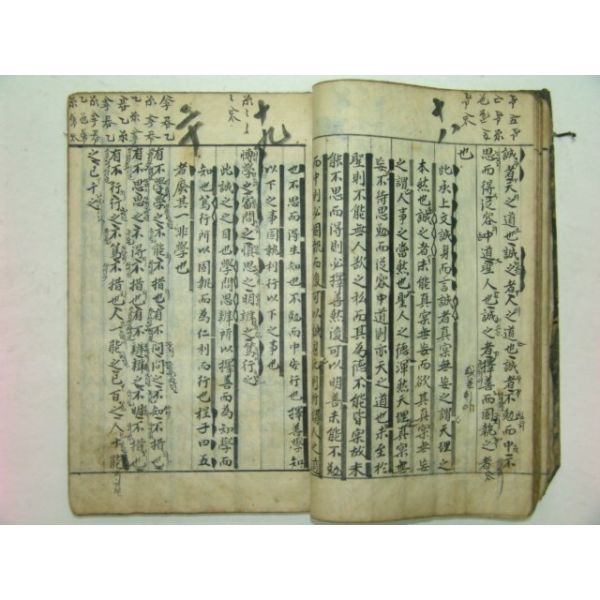 十八
誠者天之道也誠之者人之道也誠者不勉而中不
思而得從容中道聖人也誠之者擇善而固執之者
也
此承上文誠身而言誠者真宲無妄之謂天理之
本然也誠之者未能真宲無妄而欲其真宲無妄
之謂人事之當然也聖人之德渾然天理真宲無
妄不待思勉而從容中道則亦天之道也未至於
聖則不能無人欲之私而其為德不能皆宲故未
能不思而得則必擇善然後可以明善未能不勉
而中則必固執而後可以誠身此則所謂人之道
也不思而得生知也不勉而中安行也擇善學知
以下之事固執利行以下之事也
十九
博學之審問之慎思之明辨之篤行之
此誠之之目也學問思辨所以擇善而為知學而
知也篤行所以固執而為仁利而行也程子曰五
者廢其一非學也
二十
有不學學之不能不措也有不問問之不知不措也
有不思思之不得不措也有不辨辨之不明不措也
有不行行之不篤不措也人一能之己百之人十能
之己千之